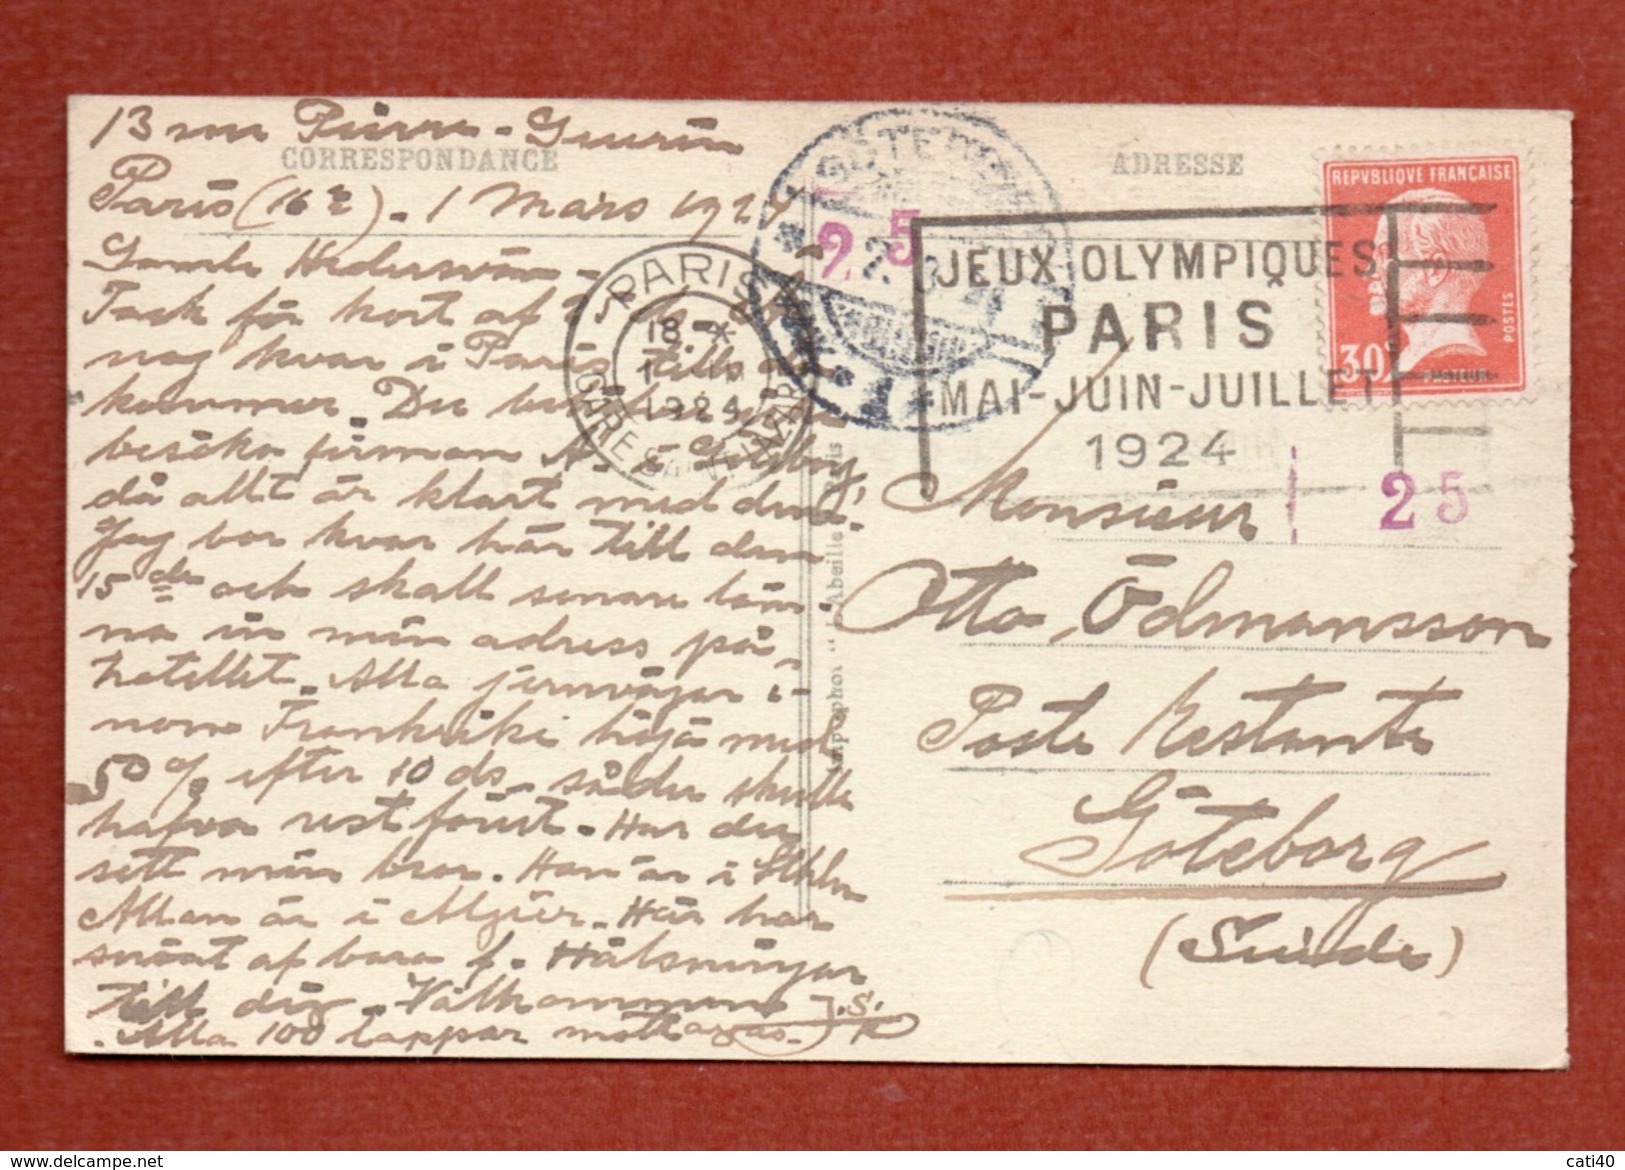 13 rue Pierre-Guérin
CORRESPONDANCE
Paris (16e). 1 Mars 1924
Gamle Hedersvän -
Tack för kort af
nog kvar i Paris tills du
kommer. Du bör
besöka firman
då allt är klart med
Jag bor kvar här till den
15de och skall senare läm-
na in min adress på
hotellet. Alla järnvägar i-
nom Frankrike höja med
50% efter 10 ds. så du skulle
hafva rest förut. Har du
sett min bror. Han är i Sthlm
Allan är i Algier. Här har
snöat af bara f- Hälsningar
till dig. Välkommen J.S.
Alla 100 lappar mottagas.
PARIS
18
1924
GARE ST LAZARE
GÖTEBORG
1
25
ADRESSE
JEUX OLYMPIQUES
PARIS
MAI-JUIN-JUILLET
1924
REPVBLIQVE FRANÇAISE
POSTES
30c
25
Monsieur
Otto Ödmansson
Poste Restante
Göteborg
(Suède)
cati40